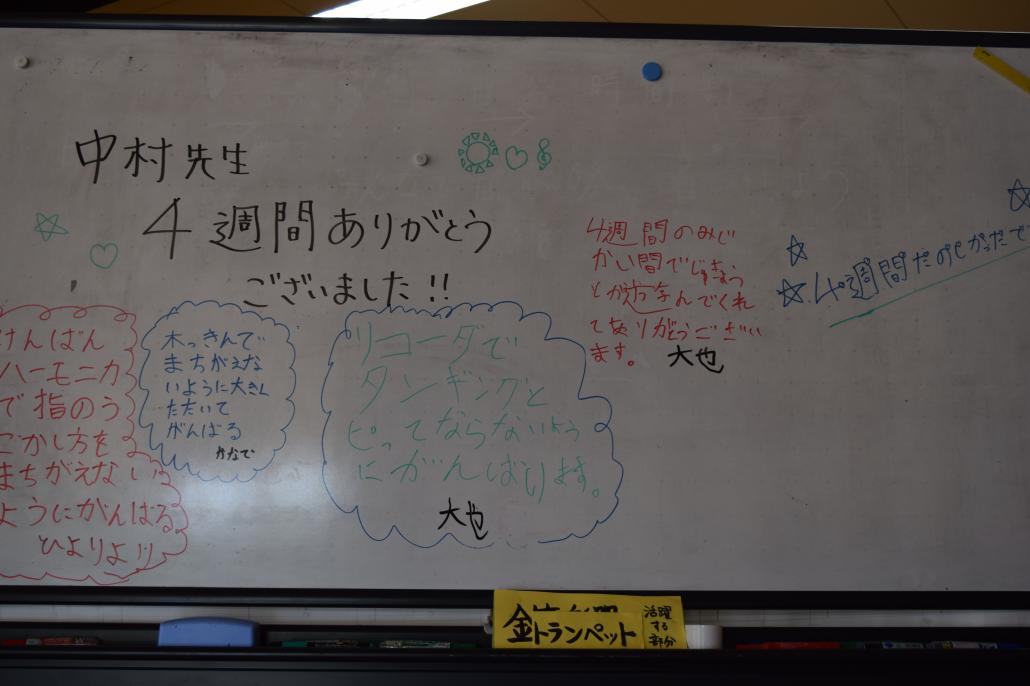 中村先生
4週間ありがとう
ございました!!
けんばん
ハーモニカ
で指のう
ごかし方を
まちがえない
ようにがんばる。
ひよりより
木っきんで
まちがえな
いように大きく
たたいて
がんばる
かなで
リコーダで
タンギングと
ピってならないよう
にがんばります。
大也
4週間のみじ
かい間でじゅぎょう
とか遊んでくれ
てありがとうござい
ます。 大也
4週間だのしかったで
金 トランペット
活躍
する
部分